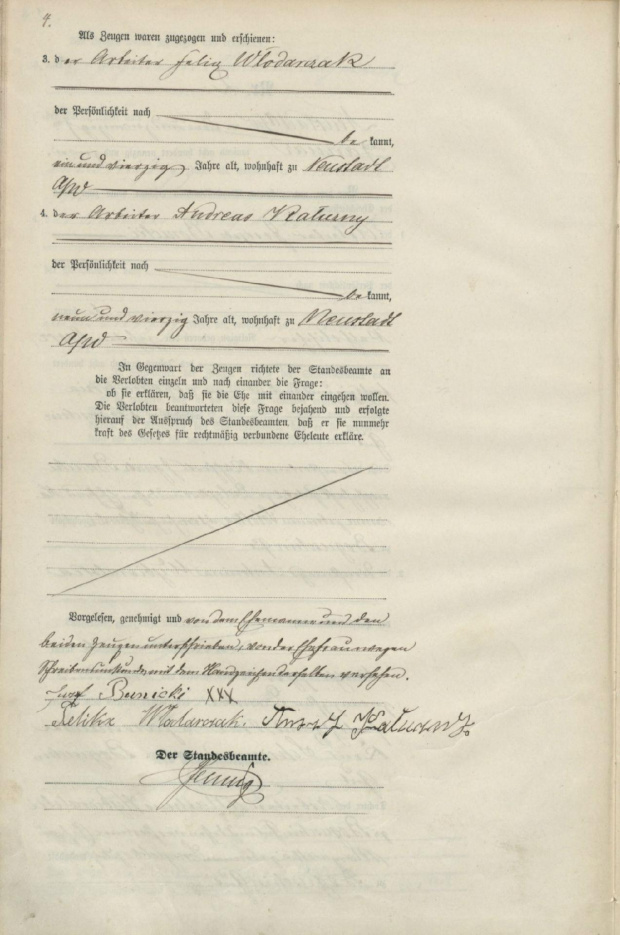 4.
Als Zeugen waren zugezogen und erschienen:
3. der Arbeiter Felix Włodarczak
der Persönlichkeit nach
bekannt,
ein und vierzig Jahre alt, wohnhaft zu Neustadt
a/W
4. der Arbeiter Andreas Katurny
der Persönlichkeit nach
bekannt,
neun und vierzig Jahre alt, wohnhaft zu Neustadt
a/W
In Gegenwart der Zeugen richtete der Standesbeamte an
die Verlobten einzeln und nach einander die Frage:
ob sie erklären, daß sie die Ehe mit einander eingehen wollen.
Die Verlobten beantworteten diese Frage bejahend und erfolgte
hierauf der Ausspruch des Standesbeamten, daß er sie nunmehr
kraft des Gesetzes für rechtmäßig verbundene Eheleute erkläre.
Vorgelesen, genehmigt und von dem Ehemanne und den
beiden Zeugen unterschrieben, von der Ehefrau wegen
Schreibensunkunde mit dem Handzeichen versehen.
Bunicki XXX
Felikx
Der Standesbeamte.